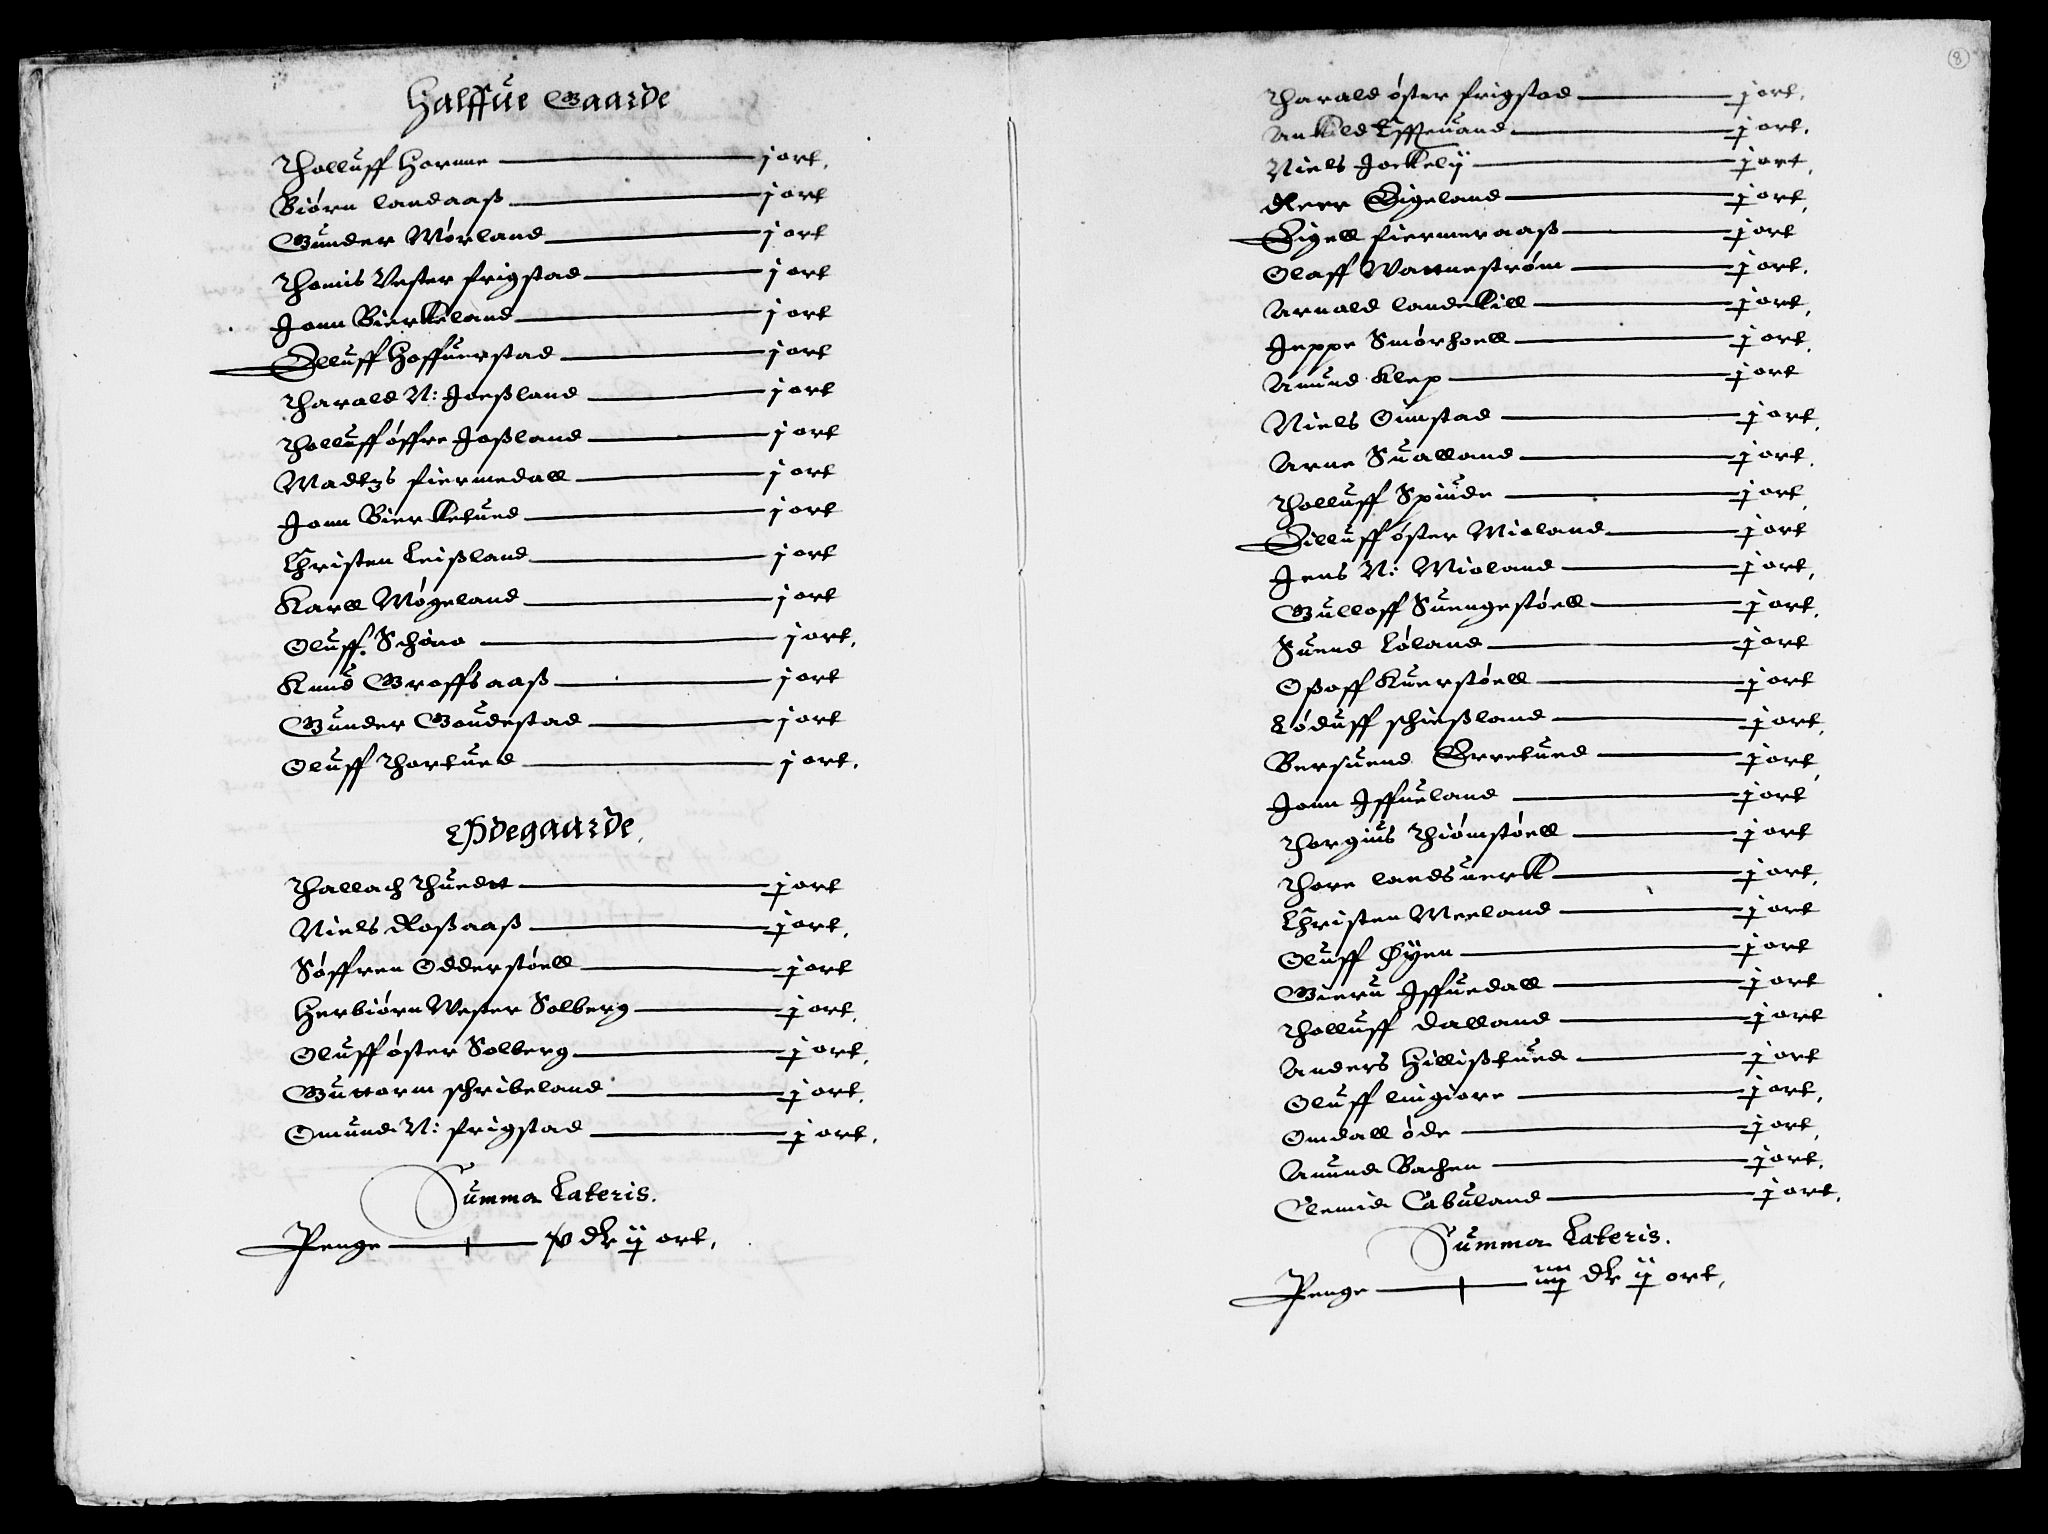 Halffue Gaarde
Tholluff Homme j ort.
Biørn landaaß j ort
Gunder Mørland j ort
Thomis Vester frigstad j ort
Jonn Bierkeland j ort
Elluff Hoffuerstad j ort
Tharald N: Joeßland j ort
Tholluff øffre Joßland j ort
Madtzs fiermedall j ort
Jonn Bierketued j ort
Christen Leißland j ort
Karll Møgeland j ort
Oluff Schøno j ort.
Knud Groffsaaß j ort
Gunder Goudestad j ort
Oluff Thortued j ort.
Ødegaarde.
Thallach Thuedtt j ort
Niels Roßaaß j ort.
Søffren Odderstøell j ort
Herbiørn Wester Solberg j ort.
Oluff øster Solberg j ort.
Guttorm schribeland j ort.
Omund N: frigstad j ort.
Summa Lateris.
Penge v dlr ij ort.
8
Tharald øster frigstad j ort.
Ankild j ort.
Niels Jorkelij j ort.
Reer Eigeland j ort.
Eigell fiermeraaß j ort
Olaff Wattnestrøm j ort.
Arnald landekill j ort.
Jeppe Smørhoell j ort.
Amund Klep j ort
Niels Oimstad j ort.
Arne Sualland j ort.
Tholluff Spinde j ort.
Eilluff øster Mioland j ort
Jens N: Mioland j ort.
Gulloff Suengestøell j ort.
Suend Løland j ort
Oßoff Kuerstøell j ort
Løduff schießland j ort.
Bersuend Erretued j ort.
Jonn Jffueland j ort
Thorgius Thiømstøell j ort
Thore landsuerk j ort.
Christen Meeland j ort
Oluff Øyen j ort
Bieru Jffuedall j ort
Tholluff dalland j ort
Anders Hillißtued j ort
Oluff lingiore j ort.
Omdall øde j ort.
Amund Bachen j ort.
Clemid Cabuland j ort.
Summa Lateris.
Penge dlr ij ort.